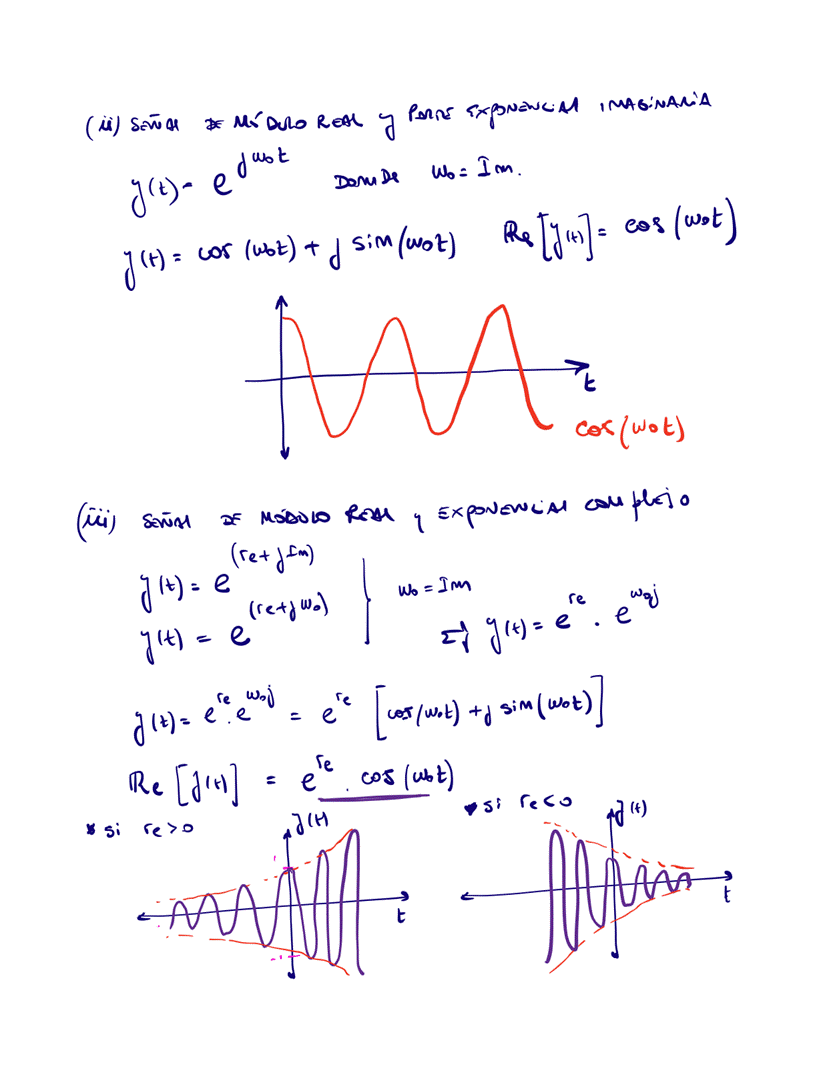 (ii) SEÑAL DE MÓDULO REAL y PARTE EXPONENCIAL IMAGINARIA
y(t) = e^{jω₀t} DONDE ω₀ = Im.
y(t) = cos(ω₀t) + j sin(ω₀t) Re[y(t)] = cos(ω₀t)
t
cos(ω₀t)
(iii) SEÑAL DE MÓDULO REAL y EXPONENCIAL COMPLEJO
y(t) = e^{(re + j Im)}
ω₀ = Im
y(t) = e^{(re + j ω₀)}
⇒ y(t) = e^{re} . e^{ω₀j}
y(t) = e^{re} . e^{ω₀j} = e^{re} [cos(ω₀t) + j sin(ω₀t)]
Re[y(t)] = e^{re} . cos(ω₀t)
* si re > 0 y(t)
t
* si re < 0 y(t)
t